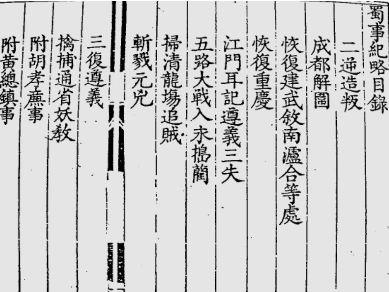 蜀事紀略目錄
二逆造叛
成都解圍
恢復建武敘南瀘合等處
恢復重慶
江門耳記遵義三失
五路大戰入永搗藺
掃清龍場追賊
斬戮元兇
三復遵義
擒捕通省妖教
附胡孝廉事
附黃總鎮事